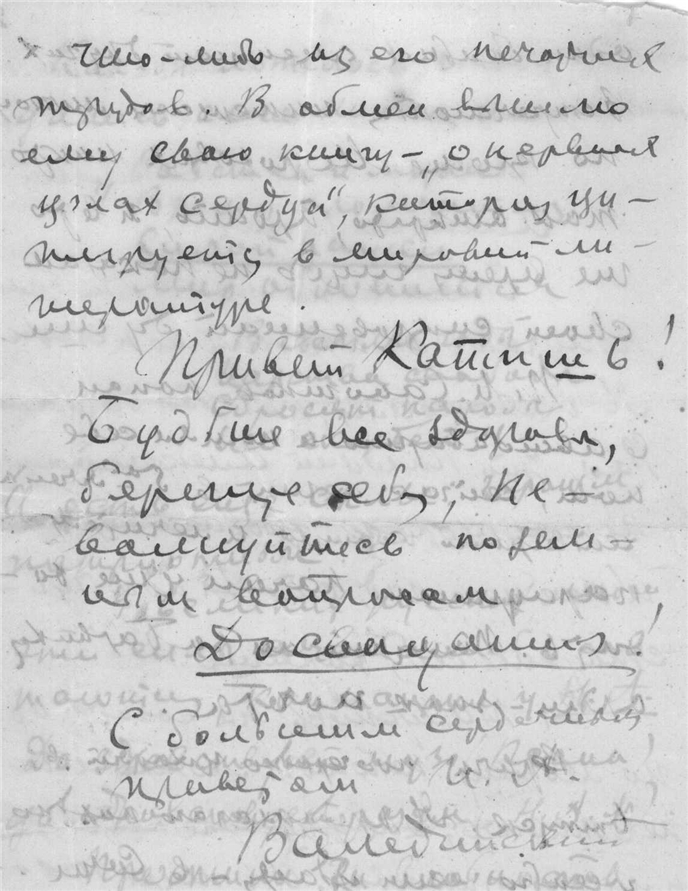 что-либо из его печатных
трудов. В обмен вышлю
ему свою книгу – „о нервных
узлах сердца“, которая ци-
тируется в мировой ли-
тературе.
Привет Катишь!
Будьте все здоровы,
берегите себя, не-
волнуйтесь по зем-
ным вопросам
До свидания!
С большим сердечным
приветом И. А.
Валединский